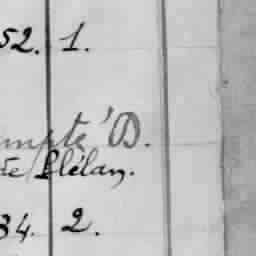 52. 1.
ompte D.
de Plélan.
34. 2.